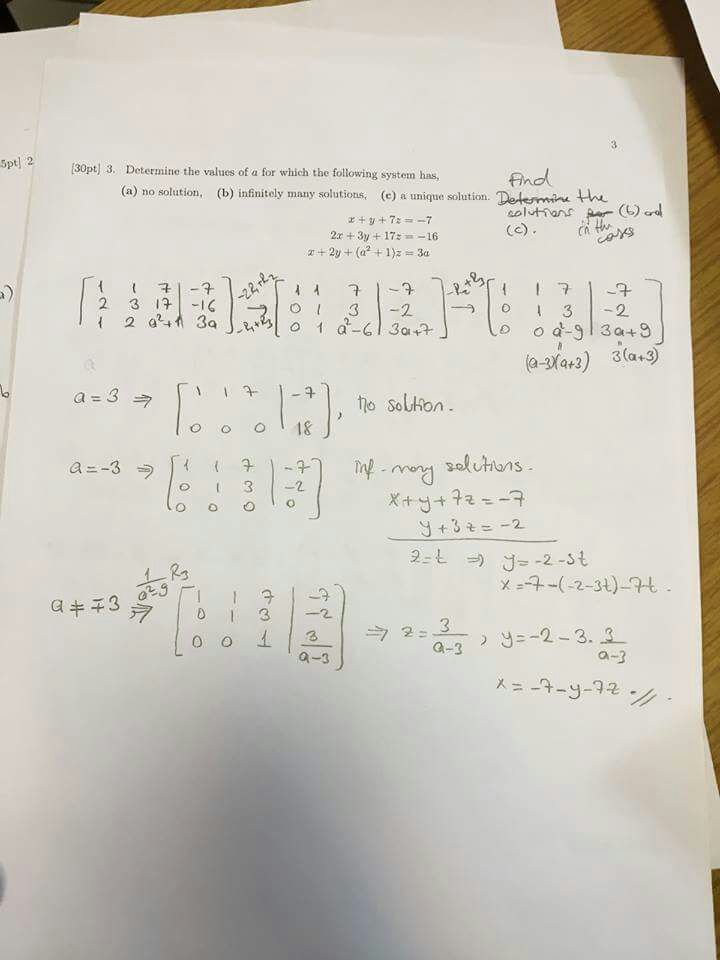 3
5pt] 2
[30pt] 3. Determine the values of a for which the following system has,
(a) no solution, (b) infinitely many solutions, (c) a unique solution.
Find
Determine the
solutions for (b) and
(c). in the cases
x + y + 7z = −7
2x + 3y + 17z = −16
x + 2y + (a² + 1)z = 3a
a)
[1 1 7 | -7] -2R₁+R₂ [1 1 7 | -7] -R₂+R₃ [1 1 7 | -7]
[2 3 17 | -16] → [0 1 3 | -2] → [0 1 3 | -2]
[1 2 a²+1 | 3a] -R₁+R₃ [0 1 a²-6 | 3a+7] [0 0 a²-9 | 3a+9]
= =
(a-3)(a+3) 3(a+3)
a
b
a = 3 ⇒ [1 1 7 | -7]
[0 0 0 | 18], no solution.
a = -3 ⇒ [1 1 7 | -7] inf. many solutions.
[0 1 3 | -2] x+y+7z = -7
[0 0 0 | 0] y+3z = -2
z=t ⇒ y = -2-3t
x = -7-(-2-3t)-7t.
a ≠ ∓3 1/(a²-9) R₃ ⇒ [1 1 7 | -7]
[0 1 3 | -2]
[0 0 1 | 3/(a-3)] ⇒ z = 3/(a-3), y = -2-3·3/(a-3)
x = -7-y-7z.//.